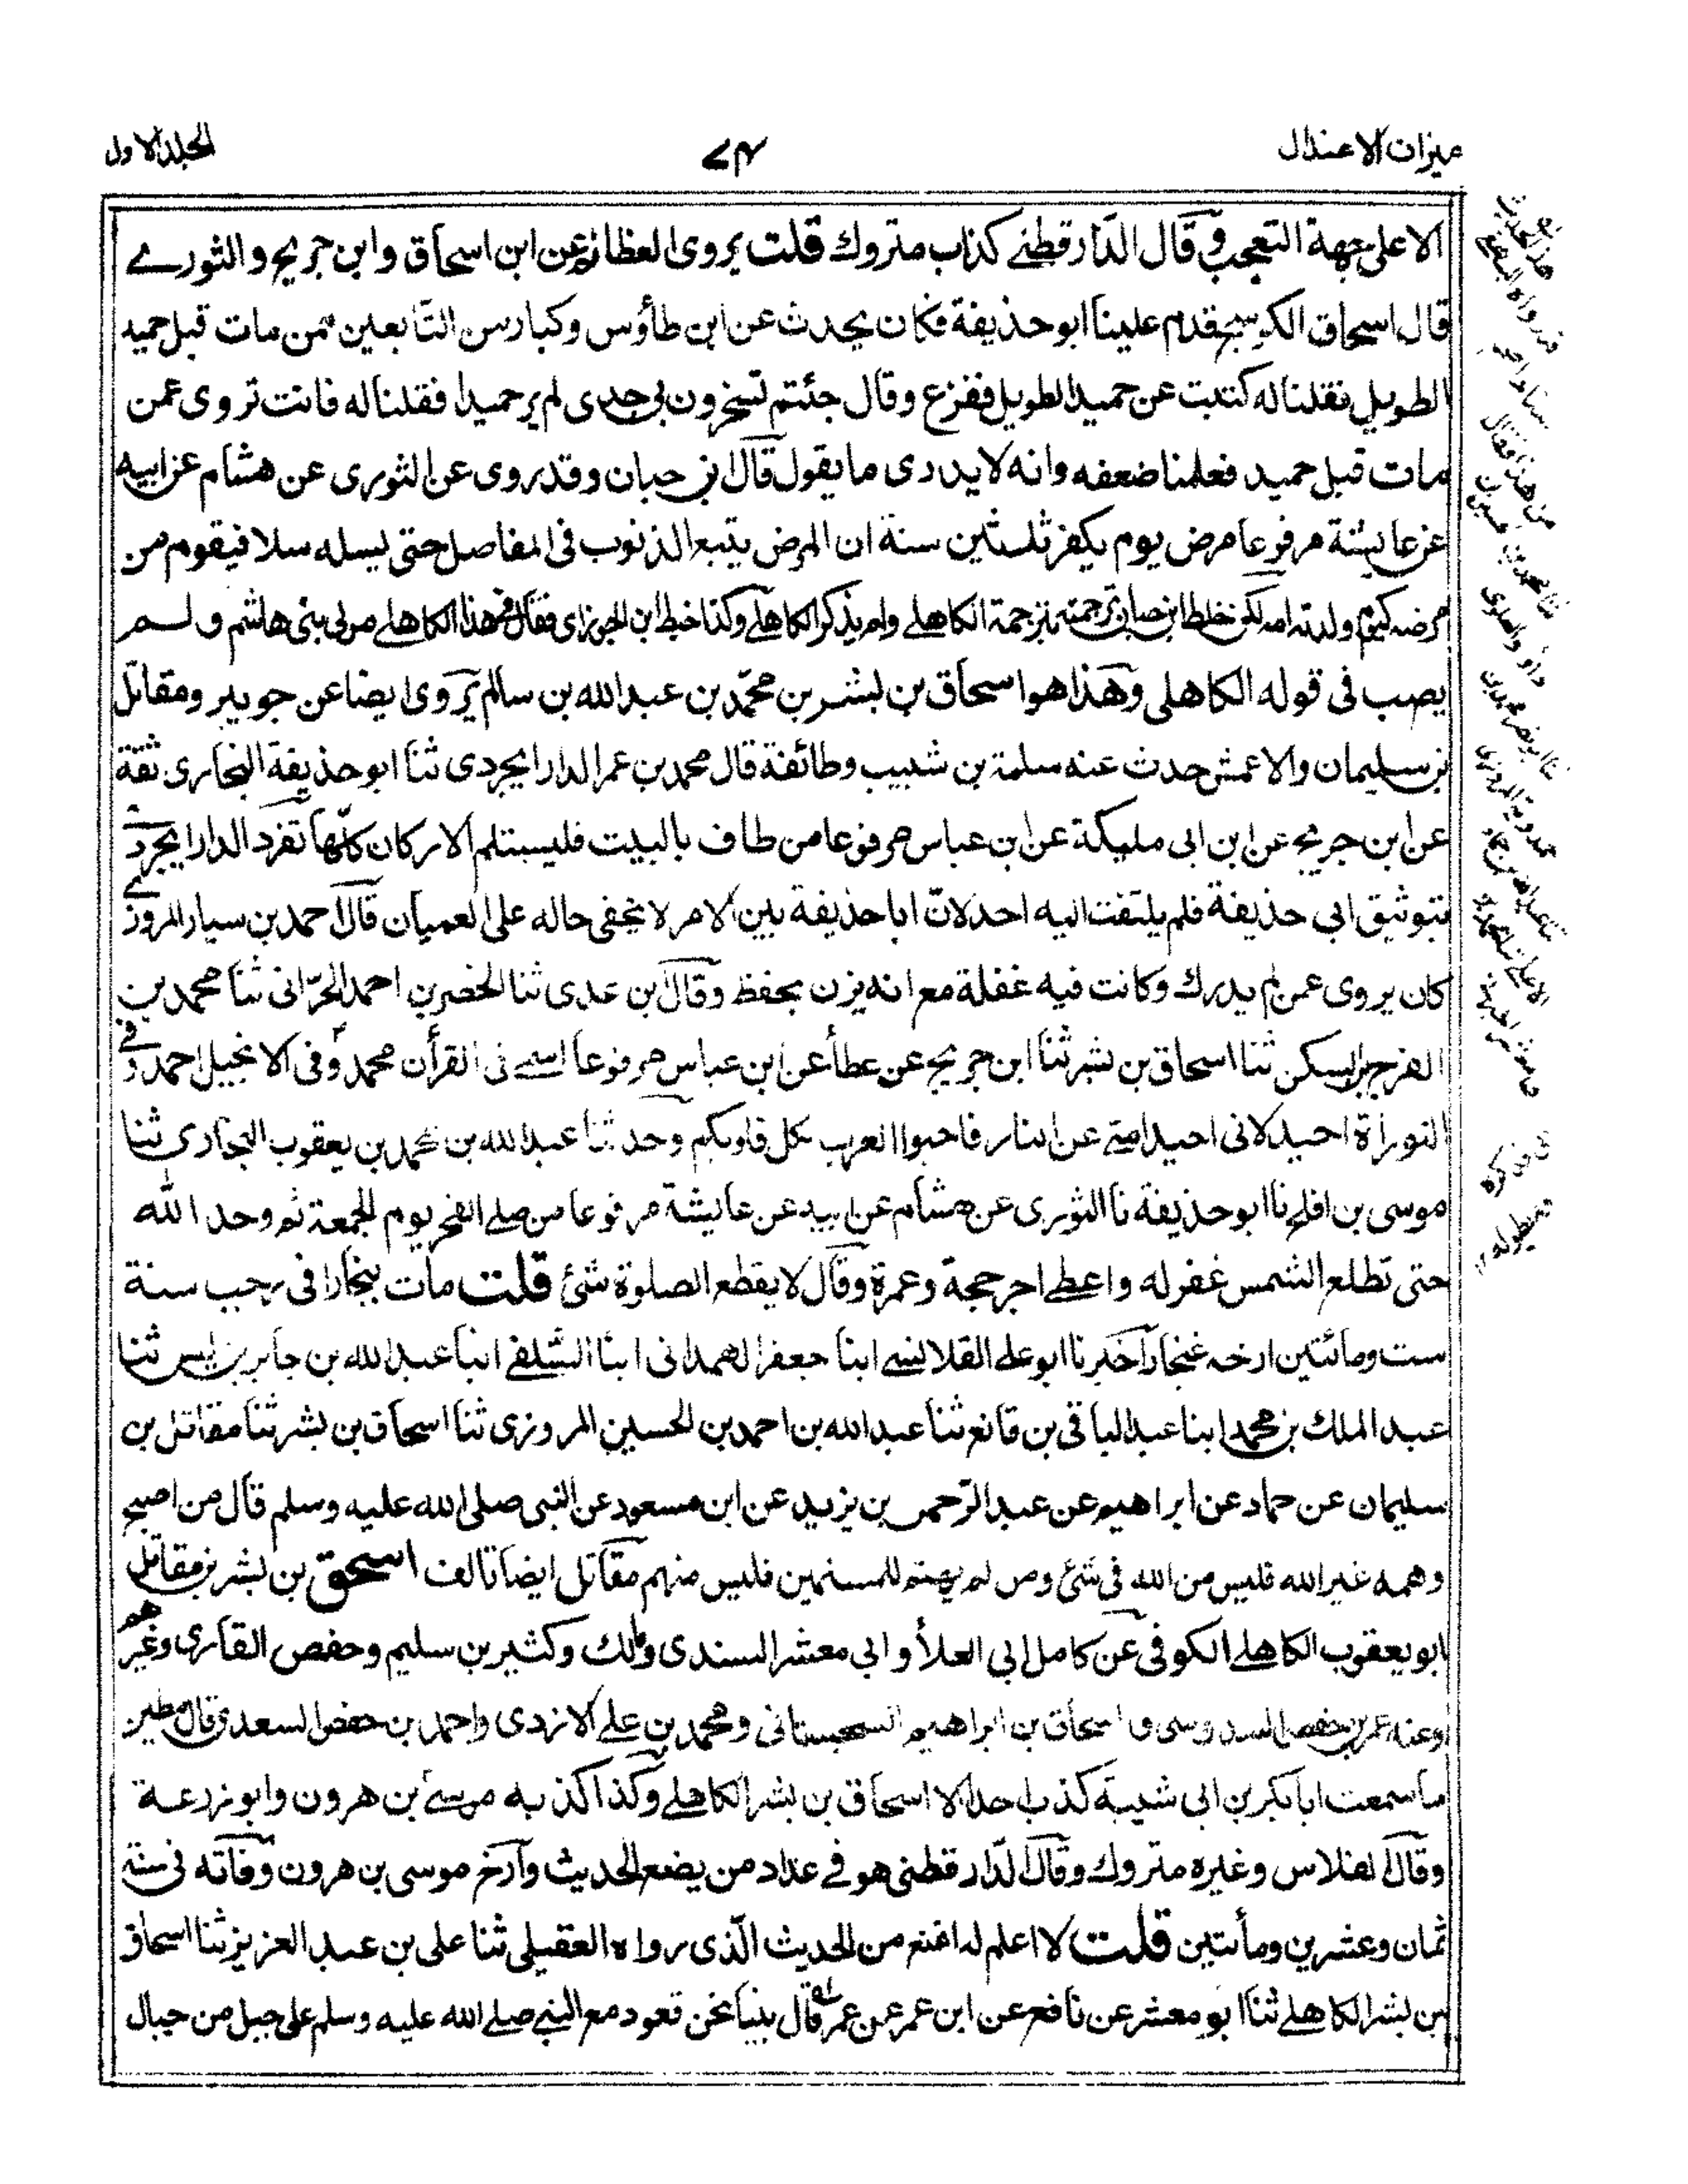 ميزان الاعتدال
٧٤
المجلد الاول
الا على جهة التعجب وقال الدّارقطنے كذاب متروك قلت يروى العظائم عن ابن اسحاق وابن جريج والثورے
قال اسحاق الكوسج قدم علينا ابو حذيفة فكان يحدث عن ابن طاؤس وكبار من التّابعين ممن مات قبل حميد
الطويل فقلنا له كتبت عن حميد الطويل ففزع وقال جئتم تسخرون بى جدى لم ير حميدا فقلنا له فانت تروى عمن
مات قبل حميد فعلمنا ضعفه وانه لا يدرى ما يقول قال ابن حبان وقد روى عن الثورى عن هشام عن ابيه
عن عايشة مرفوعا مرض يوم يكفر ثلثين سنة ان المرض يتبع الذنوب فى المفاصل حتى يسله سلا فيقوم من
مرضه كيوم ولدته امه لكن خلط ابن حبان ترجمته بترجمة الكاهلے ولم يذكر الكاهلے وكذا خبط ابن الجوزى فقال فى هذا الكاهلے مولى بنى هاشم ولم
يصب فى قوله الكاهلى وهذا هو اسحاق بن بشر بن محمّد بن عبد الله بن سالم يروى ايضا عن جويبر ومقاتل
بن سليمان والاعمش حدث عنه سلمة بن شبيب وطائفة قال محمد بن عمر الدارابجردى ثنا ابو حذيفة البخارى ثقة
عن ابن جريج عن ابن ابى مليكة عن ابن عباس مرفوعا من طاف بالبيت فليستلم الاركان كلّها تفرد الدارابجردے
بتوثيق ابى حذيفة فلم يلتفت اليه احد لانّ ابا حذيفة بين الامر لا يخفى حاله على العميان قال احمد بن سيار المروزے
كان يروى عمن لم يدرك وكانت فيه غفلة مع انه يزن بحفظ وقال ابن عدى ثنا الخضر بن احمد الحرّانى ثنا محمد بن
الفرج بن السكن ثنا اسحاق بن بشر ثنا ابن جريج عن عطأ عن ابن عباس مرفوعا اسمے فى القرأن محمد وفى الانجيل احمد وفى
التوراة احيد لانى احيد امتے عن النار فاحبوا العرب بكل قلوبكم وحدثنا عبد الله بن محمد بن يعقوب البخارى ثنا
موسى بن افلح نا ابو حذيفة نا الثورى عن هشام عن ابيه عن عايشة مرفوعا من صلے الفجر يوم الجمعة ثم وحد الله
حتى تطلع الشمس غفر له واعطے اجر حجة وعمرة وقال لا يقطع الصلوة شئ قلت مات ببخارا فى رجب سنة
ست ومائتين ارخه غنجار اخبرنا ابو علے القلانسے ابنا جعفر الهمدانى ابنا السّلفے ابنا عبد الله بن جابر بن يس ثنا
عبد الملك بن محمد ابنا عبد الباقى بن قانع ثنا عبد الله بن احمد بن الحسين المروزى ثنا اسحاق بن بشر ثنا مقاتل بن
سليمان عن حماد عن ابراهيم عن عبد الرّحمن بن يزيد عن ابن مسعود عن النبى صلى الله عليه وسلم قال من اصبح
وهمه غير الله فليس من الله فى شئ ومن لم يهتم للمسلمين فليس منهم مقاتل ايضا تالف اسحق بن بشر بن مقاتل
ابو يعقوب الكاهلے الكوفى عن كامل ابى العلأ وابى معشر السندى ومالك وكثير بن سليم وحفص القارى وغيرهم
وعنه عمر بن حفص السدوسى واسحاق بن ابراهيم السجستانى ومحمد بن علے الازدى واحمد بن حفص السعدى قال مطين
ما سمعت ابا بكر بن ابى شيبة كذب احدا الا اسحاق بن بشر الكاهلے وكذا كذبه موسےٰ بن هرون وابو زرعة
وقال الفلاس وغيره متروك وقال الدّارقطنى هو فے عداد من يضع الحديث وارّخ موسى بن هرون وفاته فى سنة
ثمان وعشرين ومأتين قلت لا اعلم له اشنع من الحديث الّذى رواه العقيلى ثنا على بن عبد العزيز ثنا اسحاق
بن بشر الكاهلے ثنا ابو معشر عن نافع عن ابن عمر عن عمر قال بينا نحن قعود مع النبے صلے الله عليه وسلم على جبل من جبال